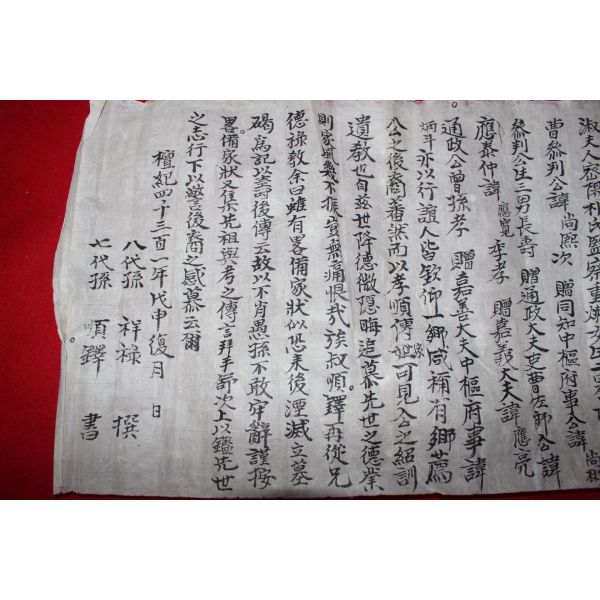 淑夫人密陽朴氏
曺參判公諱尙熙次 贈同知中樞府事公諱尙
參判公生三男長壽 贈通政大夫吏曹佐郞公諱
應泰仲諱應寬季孝 贈嘉義大夫諱應亮
通政公曾孫孝 贈嘉善大夫中樞府事諱
炳斗亦以行誼人皆欽仰一鄕咸稱有鄕薦
公之後裔蕃衍而以孝順傳家世可見公之紹訓
遺敎也自玆世降德微隱晦追慕先世之德業
則家風幾不振豈無痛恨哉族叔順鐸再從兄
德祿敎余曰雖有畧備家狀似恐來後湮滅立墓
碣爲記以壽後傳云故以不肖愚孫不敢牢辭謹按
畧備家狀又集先祖與考之傳言拜手錦次上以鑑先世
之志行下以警後裔之感慕云爾
檀紀四千三百一年戊申復月 日
八代孫 祥祿 撰
七代孫 順鐸 書